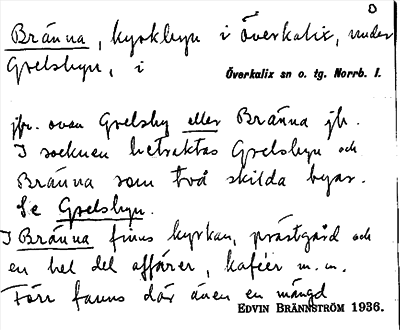 Bränna, kyrkbyn i Överkalix, under
Grelsbyn, i
Överkalix sn o. tg. Norrb. l.
jfr. ovan Grelsby eller Bränna jb.
I socknen betraktas Grelsbyn och
Bränna som två skilda byar.
Se Grelsbyn.
I Bränna finns kyrkan, prästgård och
en hel del affärer, kaféer m.m.
Förr fanns där även en mängd
EDVIN BRÄNNSTRÖM 1936.